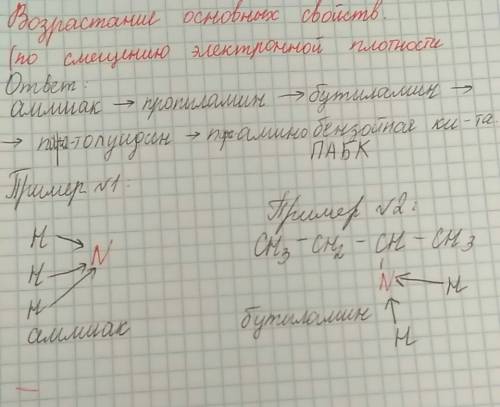 Возрастание основных свойств.
(по смещению электронной плотности
Ответ:
аммиак → пропиламин → бутиламин →
→ пара-толуидин → п-аминобензойная ки-та
ПАБК
Пример №1:
H
N
H
H
аммиак
Пример №2:
CH3 - CH2 - CH - CH3
N
H
бутиламин
H